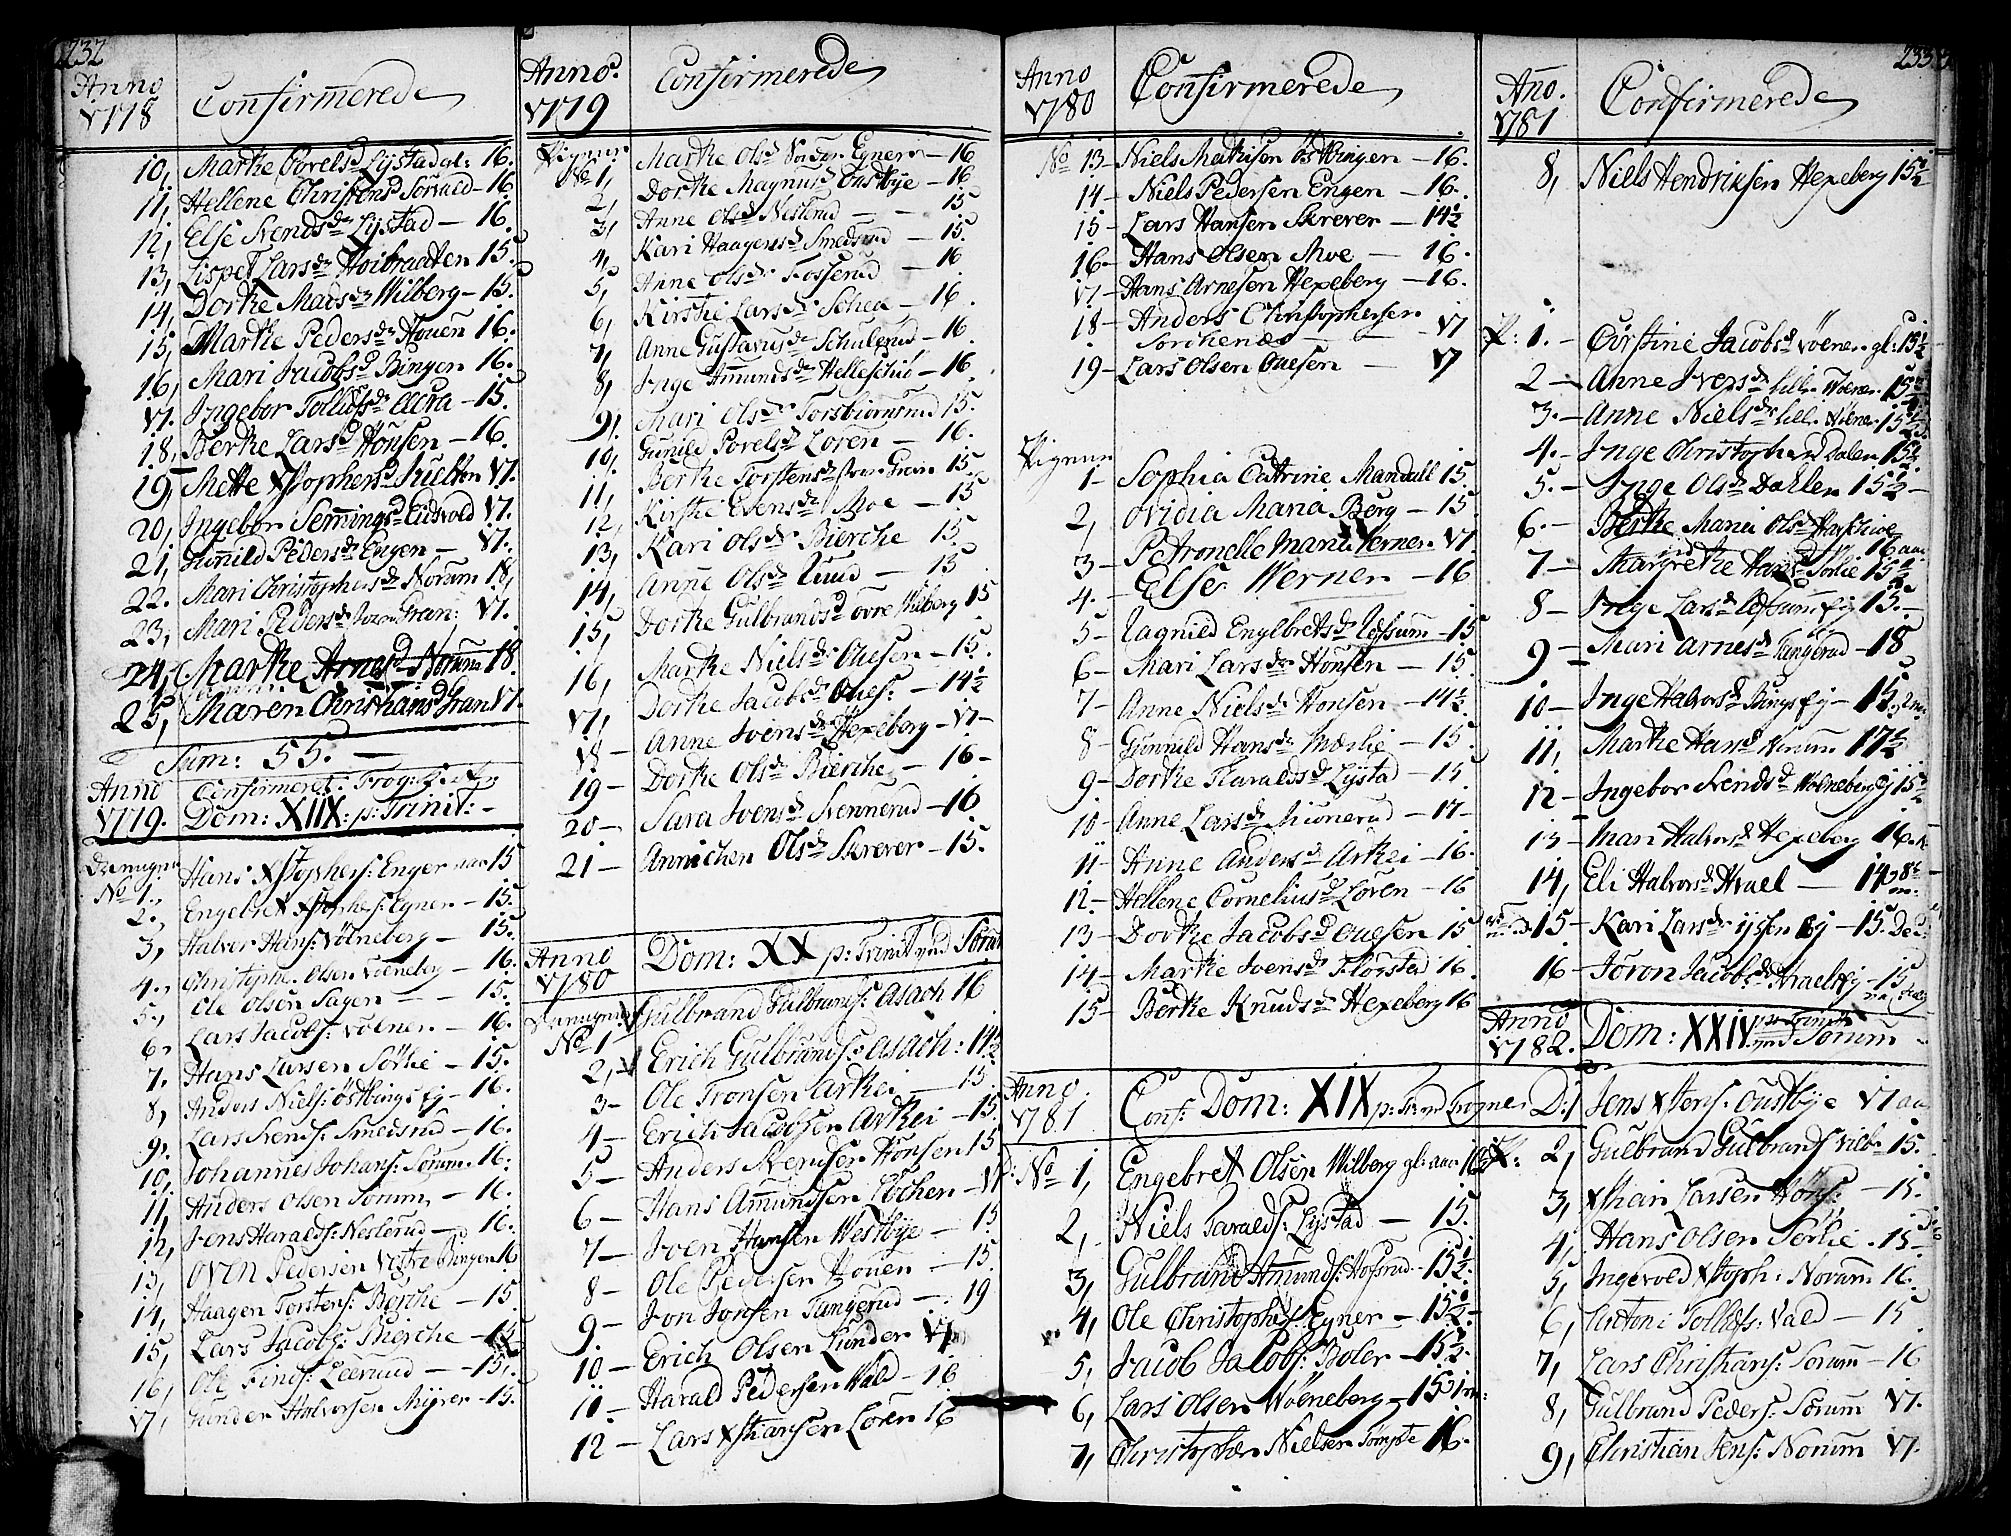 232
Anno
1778
Confirmerede
10, Marthe Povelsd. Lystad gl: 16.
11, Hellene Christensd Sörvald - 16
12, Else Svendsdr Lystad - 16.
13, Lispet Larsdr Hoibraaten 15.
14, Dorthe Madsdr Wilberg - 15.
15, Marthe Pedersdr Houen 16.
16, Mari Jacobsd Bingen 16.
17. Ingebor Tollefsdr - 15.
18, Berthe Larsd Hönsen - 16.
19, Mette Xstophersd 17.
20, Ingebor Semmingsd Eidsvold 17.
21, Gunnild Pedersdr Engen - 17.
22. Mari Christophersdr Norum 18,
23, Mari Pedersdr Gran: 17.
24, Marthe Arnesd Norum 18.
25, Maren Christiansd Gran 17.
Sum: 55. -
Anno
1779.
Confirmeret i Frog:
Dom: XIIX: p: Trinit: -
Drenigne
No 1., Hans Xstophers: Enger aar 15
2., Engebret Xstophes: Egner - 15.
3, Halvor Hans: Volneberg - 15.
4., Christophe. Olsen Volneberg - 16.
5., Ole Olsen Sagen - - 15.
6, Lars Jacobs: Volner. - 16.
7. Hans Larsen Sörlie - 15.
8, Anders Niels: Östbings Ey - 16.
9, Lars Svends: Smedsrud - 16.
10, Johannes Johans: Sorum. 16:
11, Anders Olsen Sorum, - 16.
12, Jens Haralds: Neslerud - 16:
13, Oven Pedersen Vestre Bingen 16
14, Haagen Torstens: Berche - 15
15, Lars Jacobs: Bierche - 15
16, Ole Finds: - 15,
17, Gunder Halvorsen Myrer - 15.
Anno.
1779
Confirmerede
Pigerne
No 1, Marthe Olsd Egner - 16
2, Dorthe Magnusd Oustbye - 16
3, Anne Olsd Neslerud - - 15
4, Kari Haagensdr Smedsrud - 15.
5, Anne Olsdr Fosserud - 16
6, Kirstie Larsdr Schea - 16.
7, Anne Gustavusdr Schulerud - 16.
8, Inge Amundsdr Helleschiö - 16.
9, Mari Olsdr Torsbiornsrud 15.
10, Gunild Povelsd Loren - 16.
11, Berthe Torstensdr Gran. 15.
12, Kirstie Evensdr Moe - 15
13, Kari Olsdr Bierche 15.
14, Anne Olsd Ruud - 15
15, Dorthe Gulbrandsd övre Wilberg 15
16, Marthe Nielsdr Ouesen - 15.
17, Dorthe Jacobsdr Oues: - 14½
18 - Anne Ivensdr Hexeberg - 17 -
19 - Dorthe Olsdr Bierche - 16 -
20 - Sara Ivensd Svennerud - 16
21 - Annichen Olsd Skrever - 15.
Anno
1780
Dom: XX p: Trinit: ved Sorum
Drenigne
No 1 Gulbrand Gulbrands: Asach 16
2, Erich Gulbrands: Asach: 14½
3 - Ole Tronsen Arthei - 15
4 - Erich Jacobsen Arthei - 15.
5 - Anders Svendsen Hönsen 15
6 - Hans Amundsen Löchen - 17
7 - Joen Hansen Westbye - 15
8 - Ole Pedersen Houen - 15.
9 - Jon Jonsen Tangerud - 19
10 - Erich Olsen Lunder 17
11 - Harald Pedersen Wald - 16
12 - Lars Xsthansen Loren 16
Anno
1780
Confirmerede
No 13 - Niels Mathisen Östbingen - 16.
14 - Niels Pedersen Engen - 16.
15 - Lars Hansen Skrever - 14½
16 - Hans Olsen Moe - 16.
17 - Hans Arnesen Hexeberg - 16.
18 - Anders Christophersen
Sorchenæs - - 17
19 - Lars Olsen Ouesen - 17
Pigerne
1 - Sophia Catrine Mandall 15
2, Ovidia Maria Berg - 15
3 - Petronelle Maria Verner. 17.
4. - Else Werner - 16
5 - Ragnild Engelbretsdr Löfsum - 15
6 - Mari Larsdr Hönsen - 15.
7 - Anne Nielsdr Honsen - 14½
8 - Gunnild Hansdr Mærlie - 15.
9 - Dorthe Haraldsd Lystad - 15
10 - Anne Larsdr Miönerud - 17 -
11 - Anne Andersd Arthei - 16.
12. - Hellene Corneliusd Loren - 16
13 - Dorthe Jacobsd Ouesen 15
14 - Marthe Ivensdr Flörstad 16.
15 - Berthe Knudsd Hexeberg 16
Anno
1781
Conf: Dom: XIX p: Tr: ved Frogner
D: No 1, Engebret Olsen Wilberg gl: aar 16½
2, Niels Haralds: Lystad - 15.
3, Gulbrand Amunds: Hofsrud - 15½.
4, Ole Christophers: Egner - 15½
5, Jacob Jacobs: Boler - 15½
6, Lars Olsen Wolneberg - 15
7, Christopher Nielsen Tömpte 16.
233
Ano.
1781
Confirmerede
8, Niels Hendriksen Hexeberg 15½
P: 1. - Cirstine Jacobsd Vöener. gl: 15½
2 - Anne Iversdr lille Wölner 15½
3. - Anne Nielsdr lille Wölner 15½
4. - Inge Christophersd Dalen 15½
5. - Inge Olsdr Dahlen 15½ -
6. - Berthe Maria Olsdr
16 aar
7 - Margrethe Hansdr Sörlie 15½
8 - Inge Larsdr Löfsum ey 15. -
9 - Mari Arnesdr Tangerud - 18
10 - Inge Halvorsdr Bings Ey - 15.
11, Marthe Hansd Norum 17½
12 - Ingebor Svendsd Wolneberg Ey 15½
13 - Mari Halvorsd Hexeberg 16.
14, Eli Halvorsd Hvael - 14
15 - Kari Larsdr Ey - 15.
16 - Toron Jacobsdr Hvaels Ey - 15
Anno
1782.
Dom: XXIV p: Trinit: ved Sorum
D: 1 Jens Xstens: Oustbye 17 aar
2, Gulbrand Gulbrands: 15.
3, Xsthan Larsen Höns: - 15.
4, Hans Olsen Sörlie. 15 -
5, Ingevold Xstoph: Norum 16.
6, Antoni Tollefs: Vald - 15
7, Lars Christians: Sorum - 16
8, Gulbrand Peders: Sorum 17.
9, Christian Jens: Norum 17.